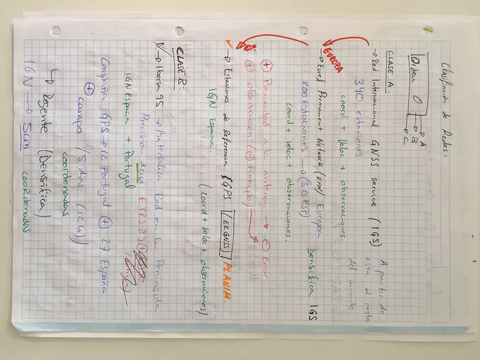 Clasificación de Redes:
Orden 0
A
B
C
CLASE A:
→ Red Internacional GNSS service (IGS)
340 estaciones
coord + veloc + observaciones
A partir de
esta el resto
del mundo
EUREF
→ Euref Permanent Network (EPN) Europa
200 estaciones → (30 ESP)
coord + veloc + observaciones
Densifica IGS
⊕ observaciones (⊕ tiempo)
→ Estaciones de Referencia GPS (ERGNSS) PLANIM.
IGN España
(coord + veloc + observaciones)
CLASE B:
→ Iberia 95 → Red en la Península
IGN España + Portugal
Campaña GPS → 12 Portugal ⊕ 27 España
⊕
campo / 5 días (12 h)
coordenadas
↳ Regente (Densifica)
IGN → 5cm
coordenadas